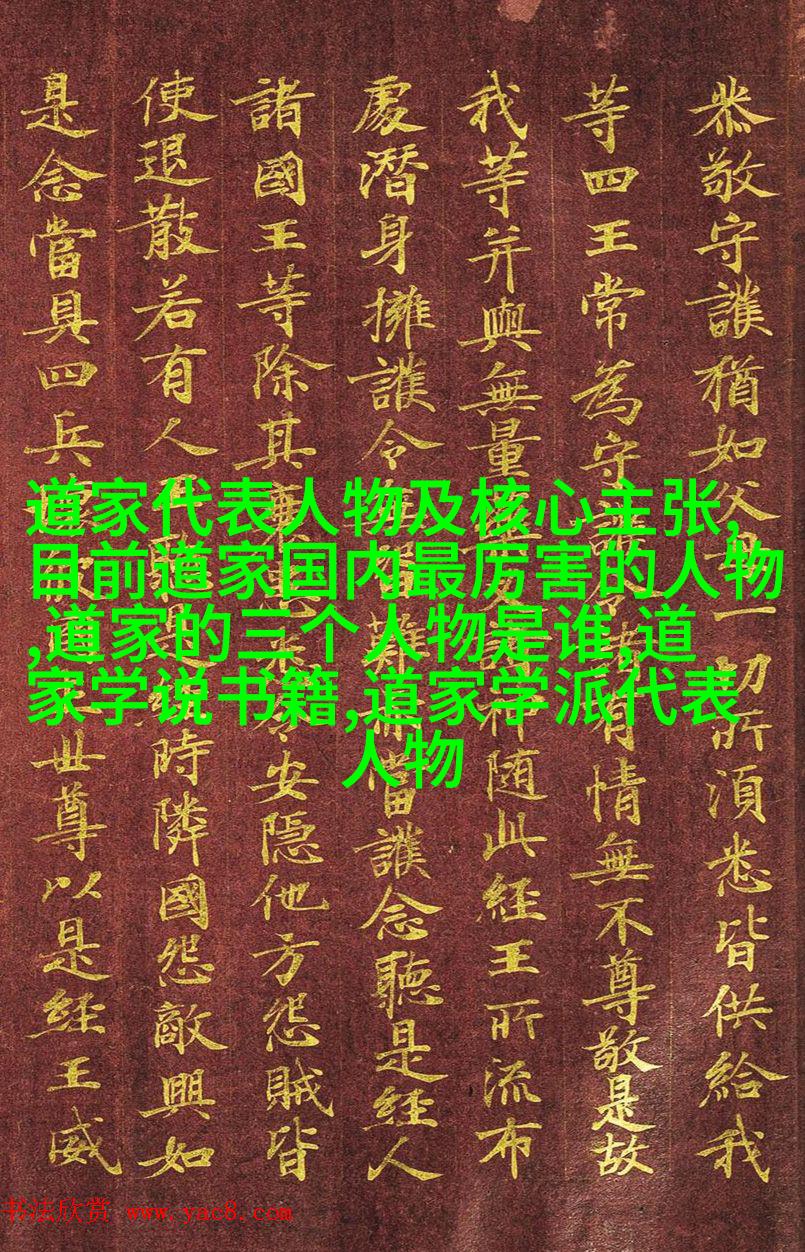 恭敬守護猶如父母一切所湏悉皆供給我
等四王常為守護有情無不尊敬是故
我等并與無量神随此經王所流布
處潛身擁護令難當護念聽是經人
諸國王等除其令安隱他方怨賊皆
使退散若有人時隣國怨敵興如
是念當具四兵世尊以是經王威
道家代表人物及核心主张,
目前道家国内最厉害的人物
,道家的三个人物是谁,道
家学说书籍,道家学派代表
人物
书法欣赏 www.yac8.com